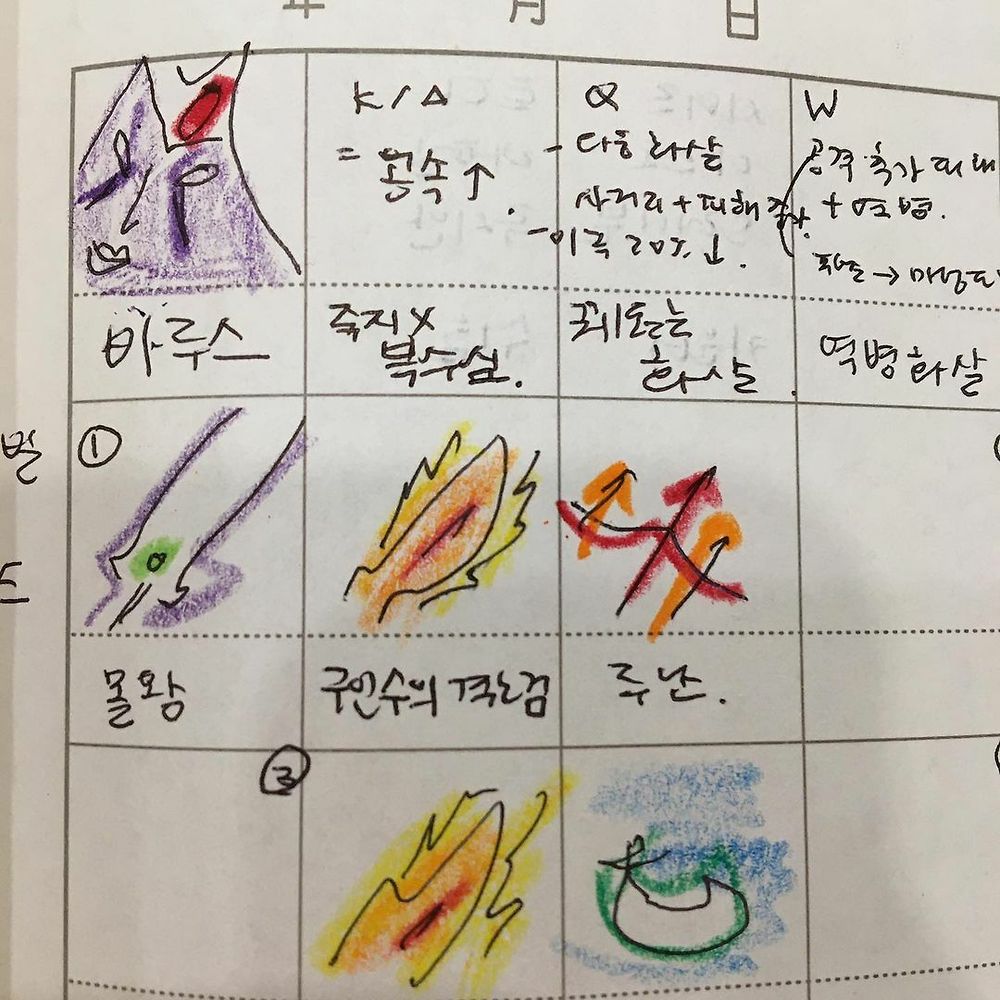 年 月 日
K / A
= 공속↑.
Q
- 다중 화살
사거리 + 피해 증가.
- 이속 20%↓.
W
공격 추가 피해
+ 역병.
폭발 →
바루스
죽지X
복수심.
꿰뚫는
화살.
역병 화살
벌
드
①
몰왕
구인수의 격노검
루난.
②